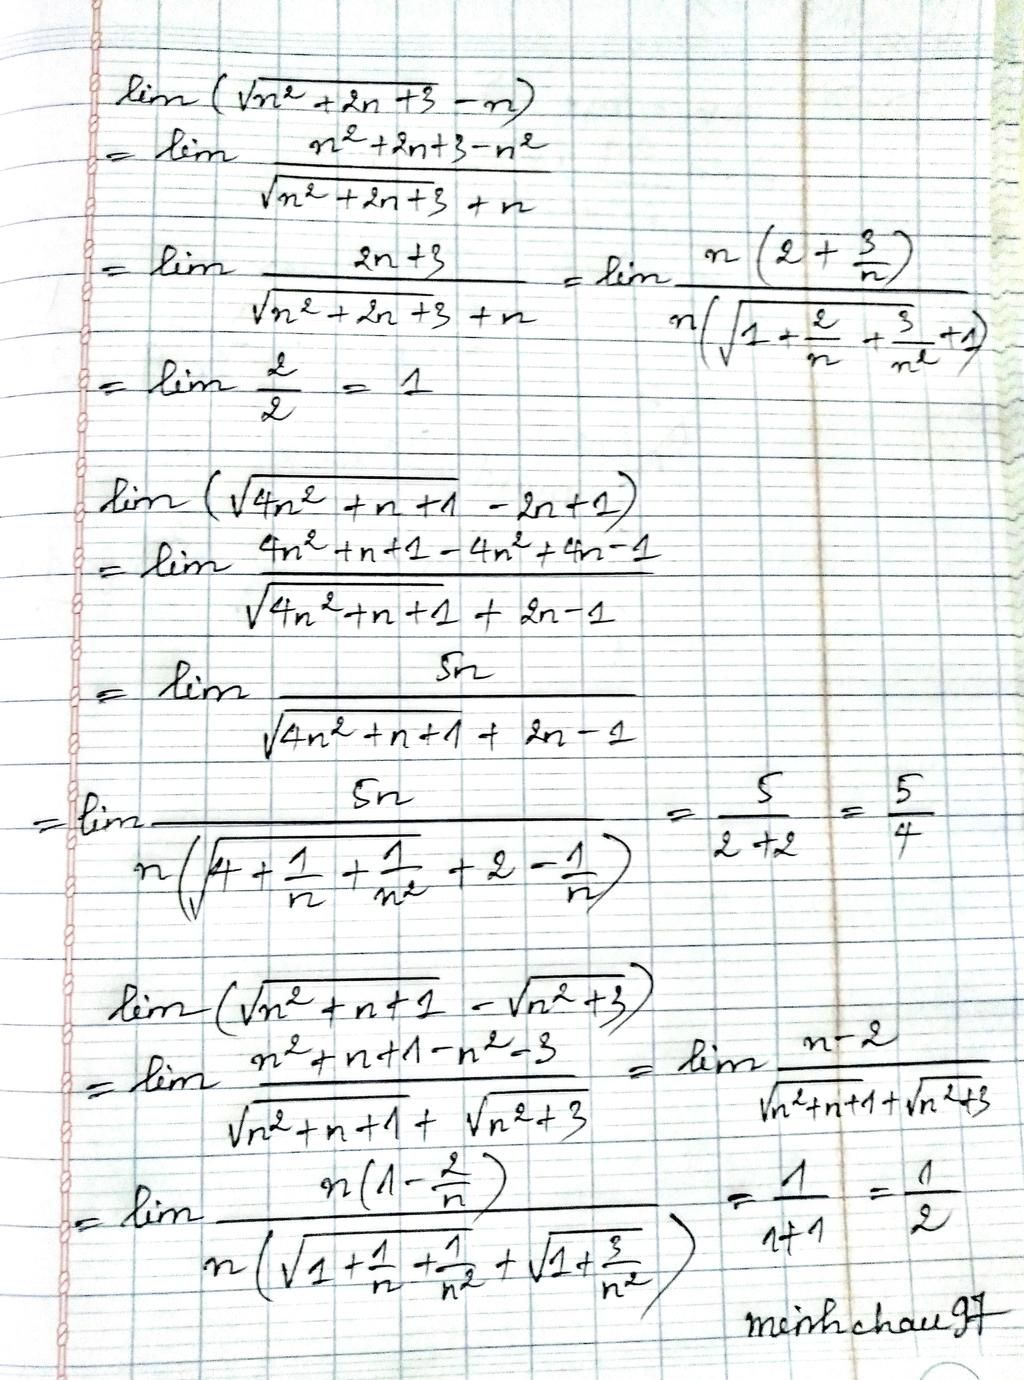 lim (√(n² + 2n + 3) - n)
= lim (n² + 2n + 3 - n²) / (√(n² + 2n + 3) + n)
= lim (2n + 3) / (√(n² + 2n + 3) + n) = lim n(2 + 3/n) / n(√(1 + 2/n + 3/n²) + 1)
= lim 2/2 = 1
lim (√(4n² + n + 1) - 2n + 1)
= lim (4n² + n + 1 - 4n² + 4n - 1) / (√(4n² + n + 1) + 2n - 1)
= lim 5n / (√(4n² + n + 1) + 2n - 1)
= lim 5n / n(√(4 + 1/n + 1/n²) + 2 - 1/n) = 5 / (2 + 2) = 5/4
lim (√(n² + n + 1) - √(n² + 3))
= lim (n² + n + 1 - n² - 3) / (√(n² + n + 1) + √(n² + 3)) = lim (n - 2) / (√(n² + n + 1) + √(n² + 3))
= lim n(1 - 2/n) / n(√(1 + 1/n + 1/n²) + √(1 + 3/n²)) = 1 / (1 + 1) = 1/2
minhchau97